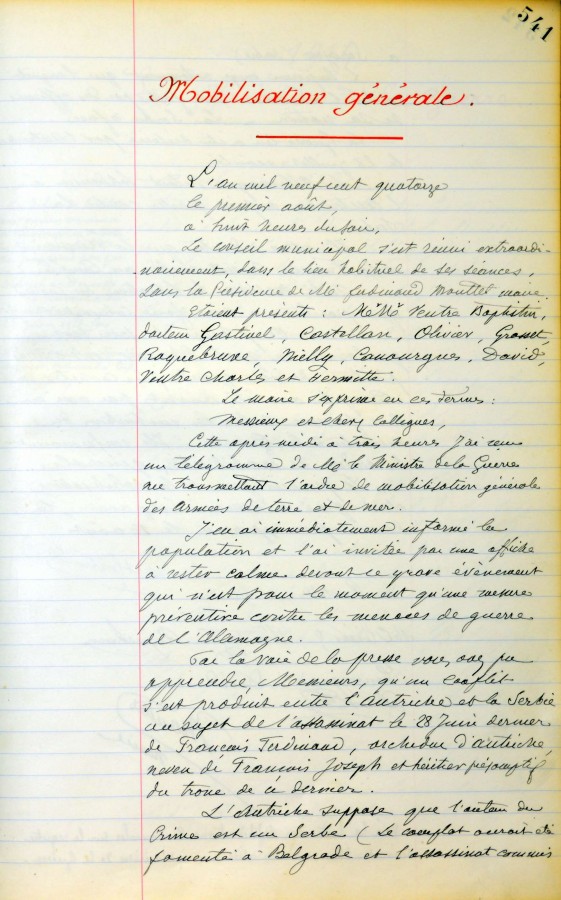 541
Mobilisation générale.
L'an mil neuf cent quatorze
le premier août,
à huit heures du soir,
Le conseil municipal s'est réuni extraordi-
nairement, dans le lieu habituel de ses séances,
sous la Présidence de Mr Ferdinand Mouttet maire.
Etaient présents : MrMrs Ventre Baptistin,
docteur Gastinel, Castellan, Olivier, Grasset,
Roquebrune, Nielly, Canourgues, David,
Ventre Charles et Hermitte.
Le maire s'exprime en ces termes :
Messieurs et chers Collègues,
Cette après midi à trois heures j'ai reçu
un télégramme de Mr le Ministre de la Guerre
me transmettant l'ordre de mobilisation générale
des Armées de terre et de mer.
J'en ai immédiatement informé la
population et l'ai invitée par une affiche
à rester calme devant ce grave évènement
qui n'est pour le moment qu'une mesure
préventive contre les menaces de guerre
de l'Alamagne.
Par la voie de la presse vous avez pu
apprendre, Messieurs, qu'un conflit
s'est produit entre l'Autriche et la Serbie
au sujet de l'assassinat le 28 Juin dernier
de François Ferdinand, archiduc d'Autriche,
neveu de François Joseph et héritier présomptif
du trone de ce dernier.
L'Autriche suppose que l'auteur du
Crime est un Serbe (Le complot aurait été
fomenté à Belgrade et l'assassinat commis